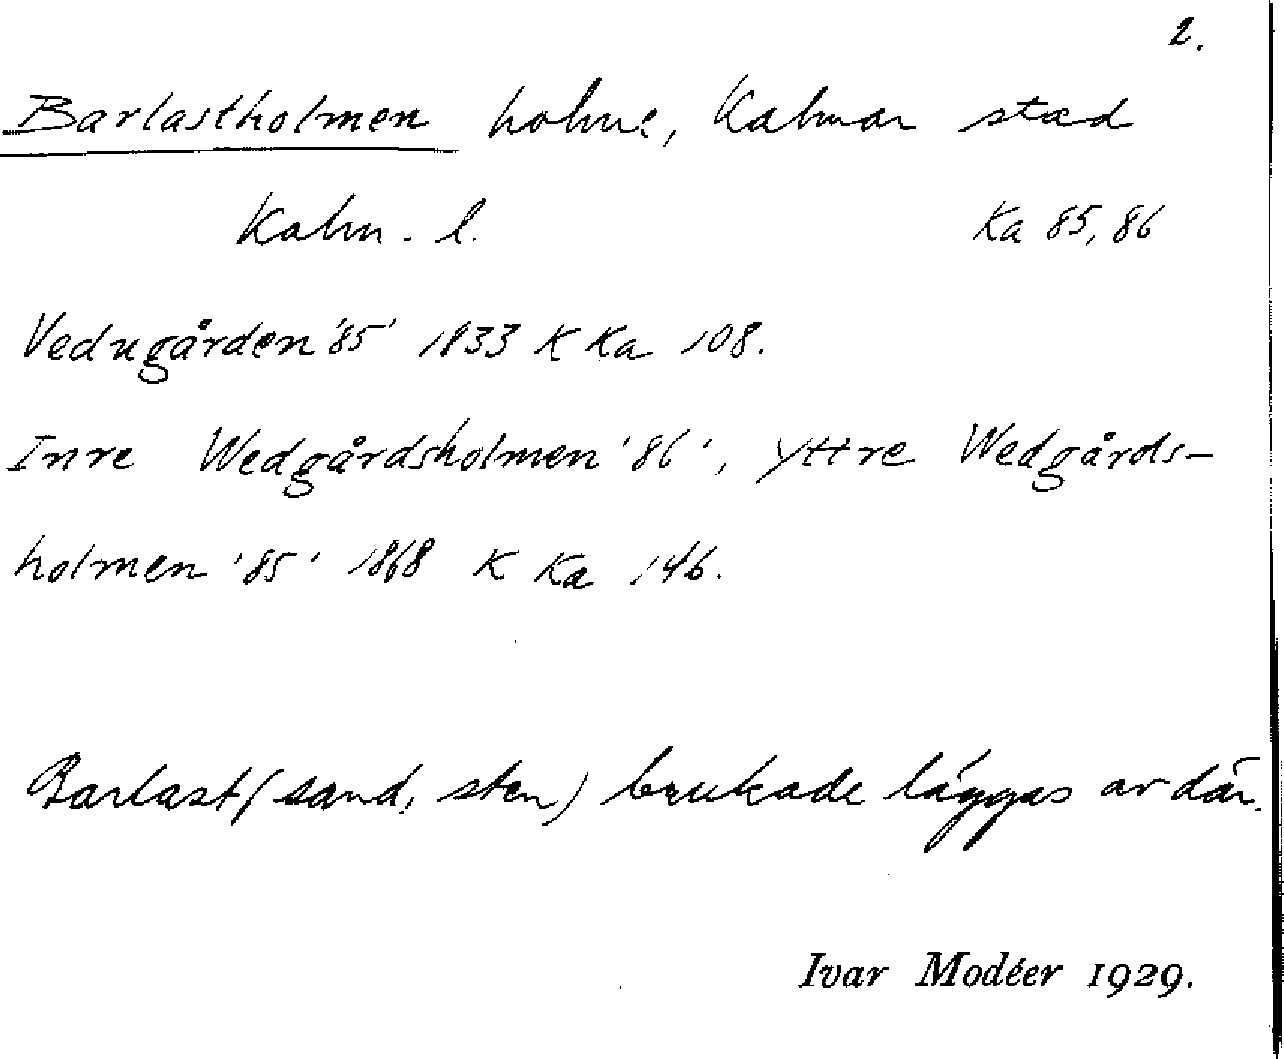 2.
Barlastholmen holme, Kalmar stad
Kalm. l. Ka 85, 86
Vedugården '85' 1833 K Ka 108.
Inre Wedgårdsholmen '86', Yttre Wedgårds-
holmen '85' 1868 K Ka 146.
Barlast (sand, sten) brukade läggas av där.
Ivar Modéer 1929.